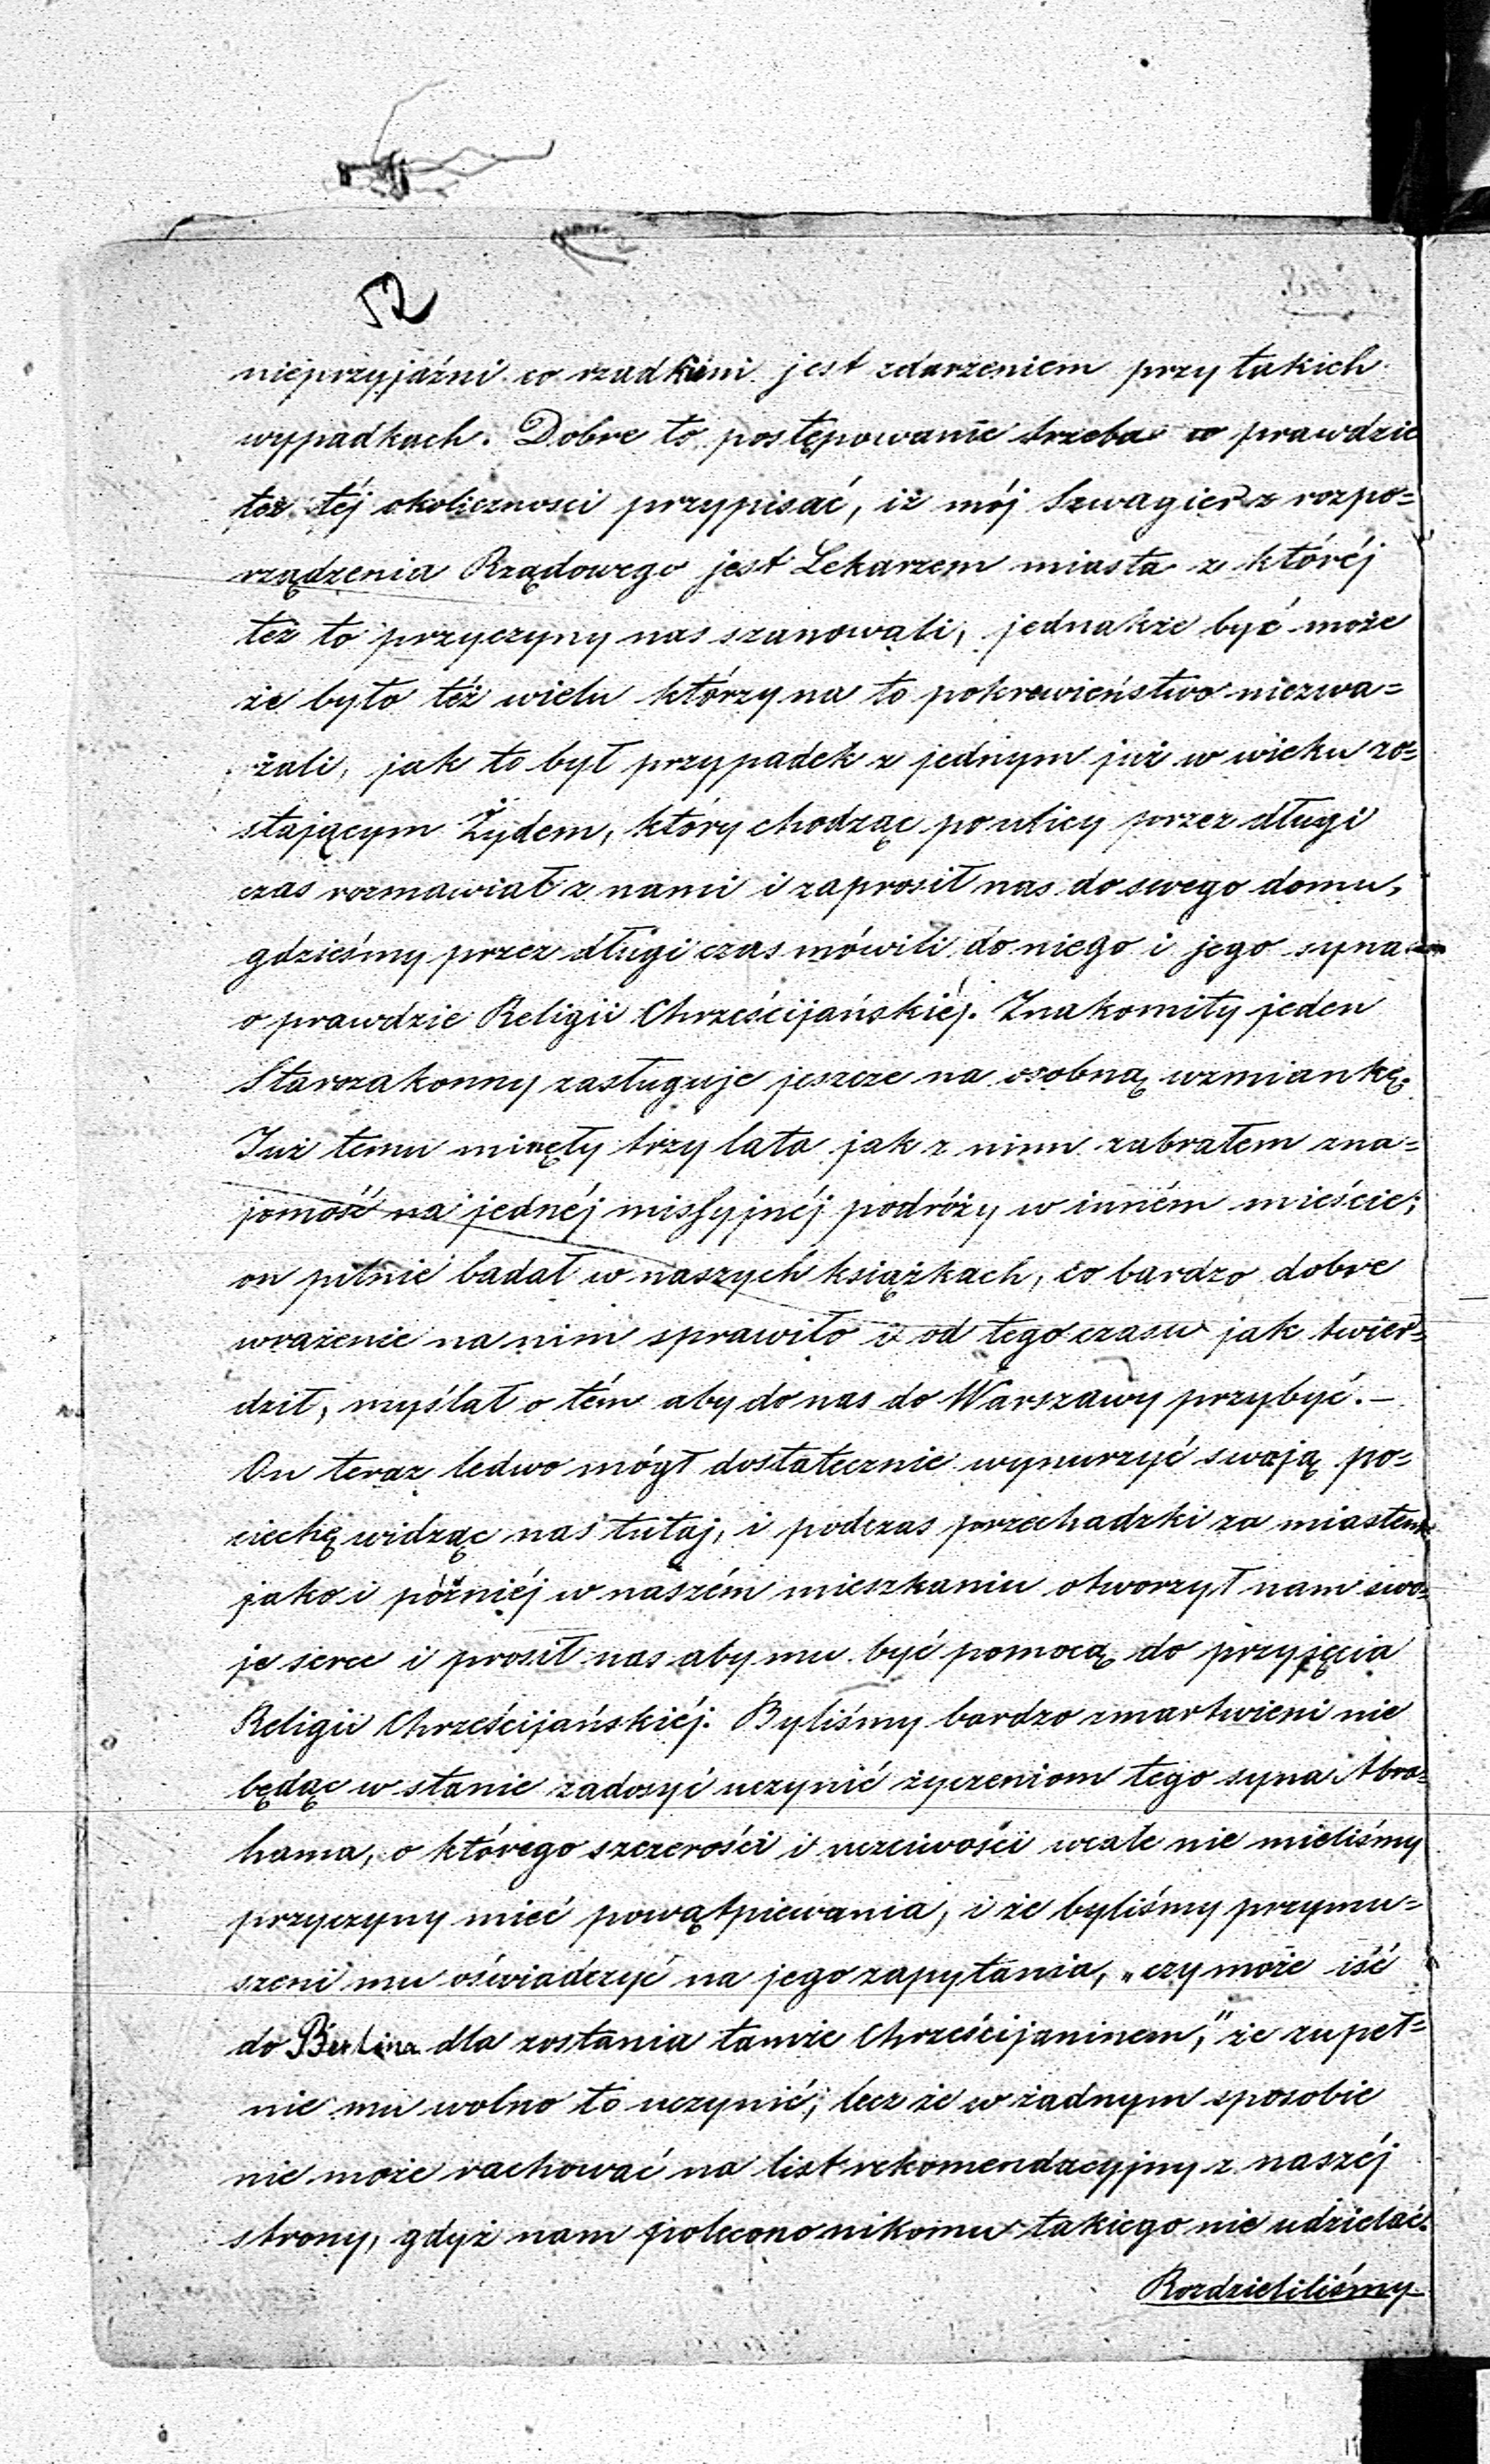 52
nieprzyjaźni co rzadkiem jest zdarzeniem przy takich
wypadkach. Dobre to postępowanie trzeba co prawdzie
też téj okoliczności przypisać, iż mój Szwagier z rozpo=
rządzenia Rządowego jest Lekarzem miasta z któréj
też to przyczyny nas szanowali, jednakże być może
że było téż wielu którzy na to pokrewieństwo niezwa=
żali, jak to był przypadek z jednym już w wieku zo=
stającym Żydem, który chodząc po ulicy przez długi
czas rozmawiał z nami i zaprosił nas do swego domu,
gdzieśmy przez długi czas mówili do niego i jego syna
o prawdzie Religii Chrześcijańskiéj. Znakomity jeden
Starozakonny zasługuje jeszcze na osobną wzmiankę.
Już temu minęły trzy lata jak z nim zabrałem zna=
jomość na jednéj missyjnéj podróży w inném mieście;
on pilnie badał w naszych książkach, co bardzo dobre
wrażenie na nim sprawiło i od tego czasu jak twier=
dził, myślał o tém aby do nas do Warszawy przybyć. –
On teraz ledwo mógł dostatecznie wynurzyć swoją po=
ciechę widząc nas tutaj, i podczas przechadzki za miastem
jako i późniéj w naszém mieszkaniu otworzył nam swo=
je serce i prosił nas aby mu być pomocą do przyjęcia
Religii Chrześcijańskiéj. Byliśmy bardzo zmartwieni nie
będąc w stanie zadosyć uczynić życzeniom tego syna Abra=
hama, o którego szczerości i uczciwości wcale nie mieliśmy
przyczyny mieć powątpiewania, i że byliśmy przymu=
szeni mu oświadczyć na jego zapytania, „czy może iść
do Berlina dla zostania tamże Chrześcijaninem," że zupeł=
nie mu wolno to uczynić, lecz że w żadnym sposobie
nie może rachować na list rekomendacyjny z naszéj
strony, gdyż nam polecono nikomu takiego nie udzielać.
Rozdzieliliśmy